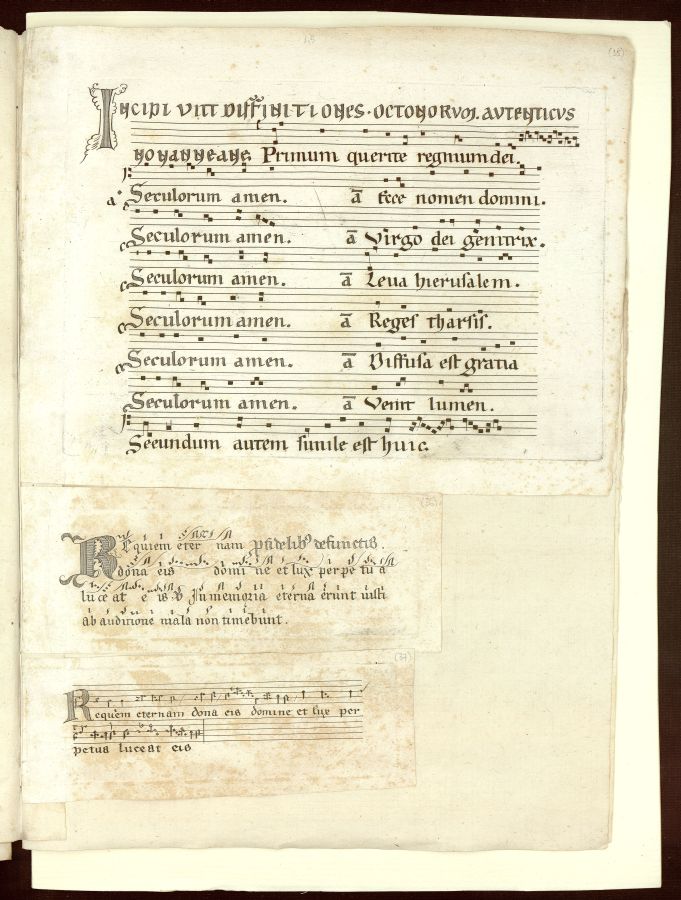 Incipiunt Diffinitiones. octonorum. autenticus
noyanneane. Primum querite regnum dei.
a. Seculorum amen. a Ecce nomen domini.
Seculorum amen. a Virgo dei genitrix.
Seculorum amen. a Leua hierusalem.
Seculorum amen. a Reges tharsis.
Seculorum amen. a Diffusa est gratia
Seculorum amen. a Venit lumen.
Secundum autem simile est huic.
(36)
Requiem eter nam defunctis.
dona eis domi ne et lux per pe tu a
lu ce at e is V In memoria eterna erunt iusti
ab auditione mala non timebunt.
(37)
Requiem eternam dona eis domine et lux per
petua luceat eis